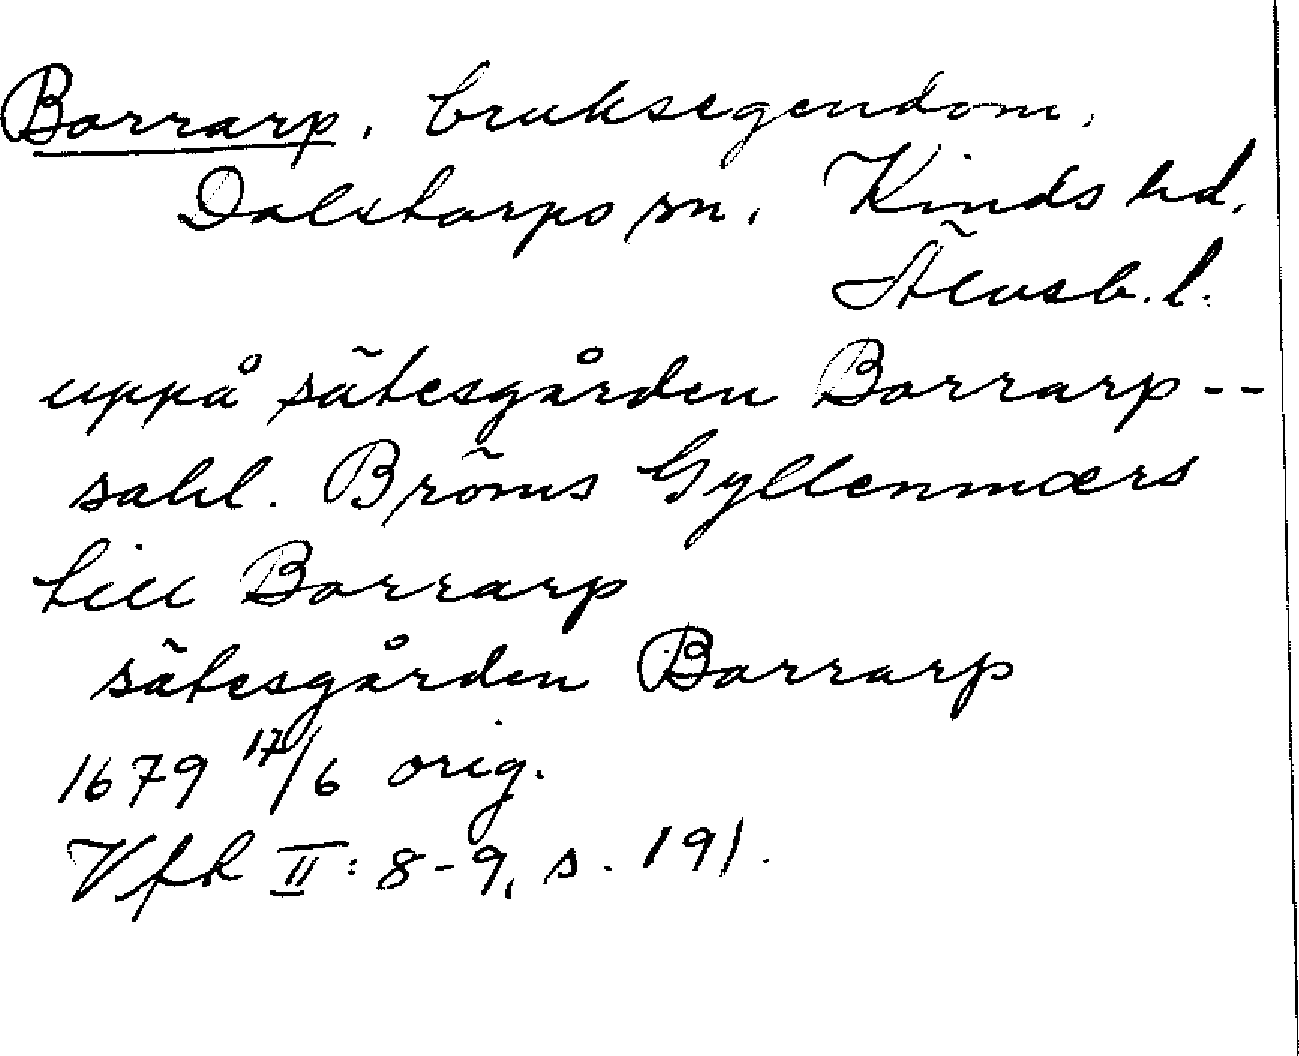 Borrarp, bruksegendom,
Dalstorps sn, Kinds hd,
Älvsb. l.
uppå sätesgården Borrarp --
sahl. Bröms Gyllenmærs
till Borrarp
sätesgården Borrarp
1679 17/6 orig.
Vfh II: 8-9, s. 191.